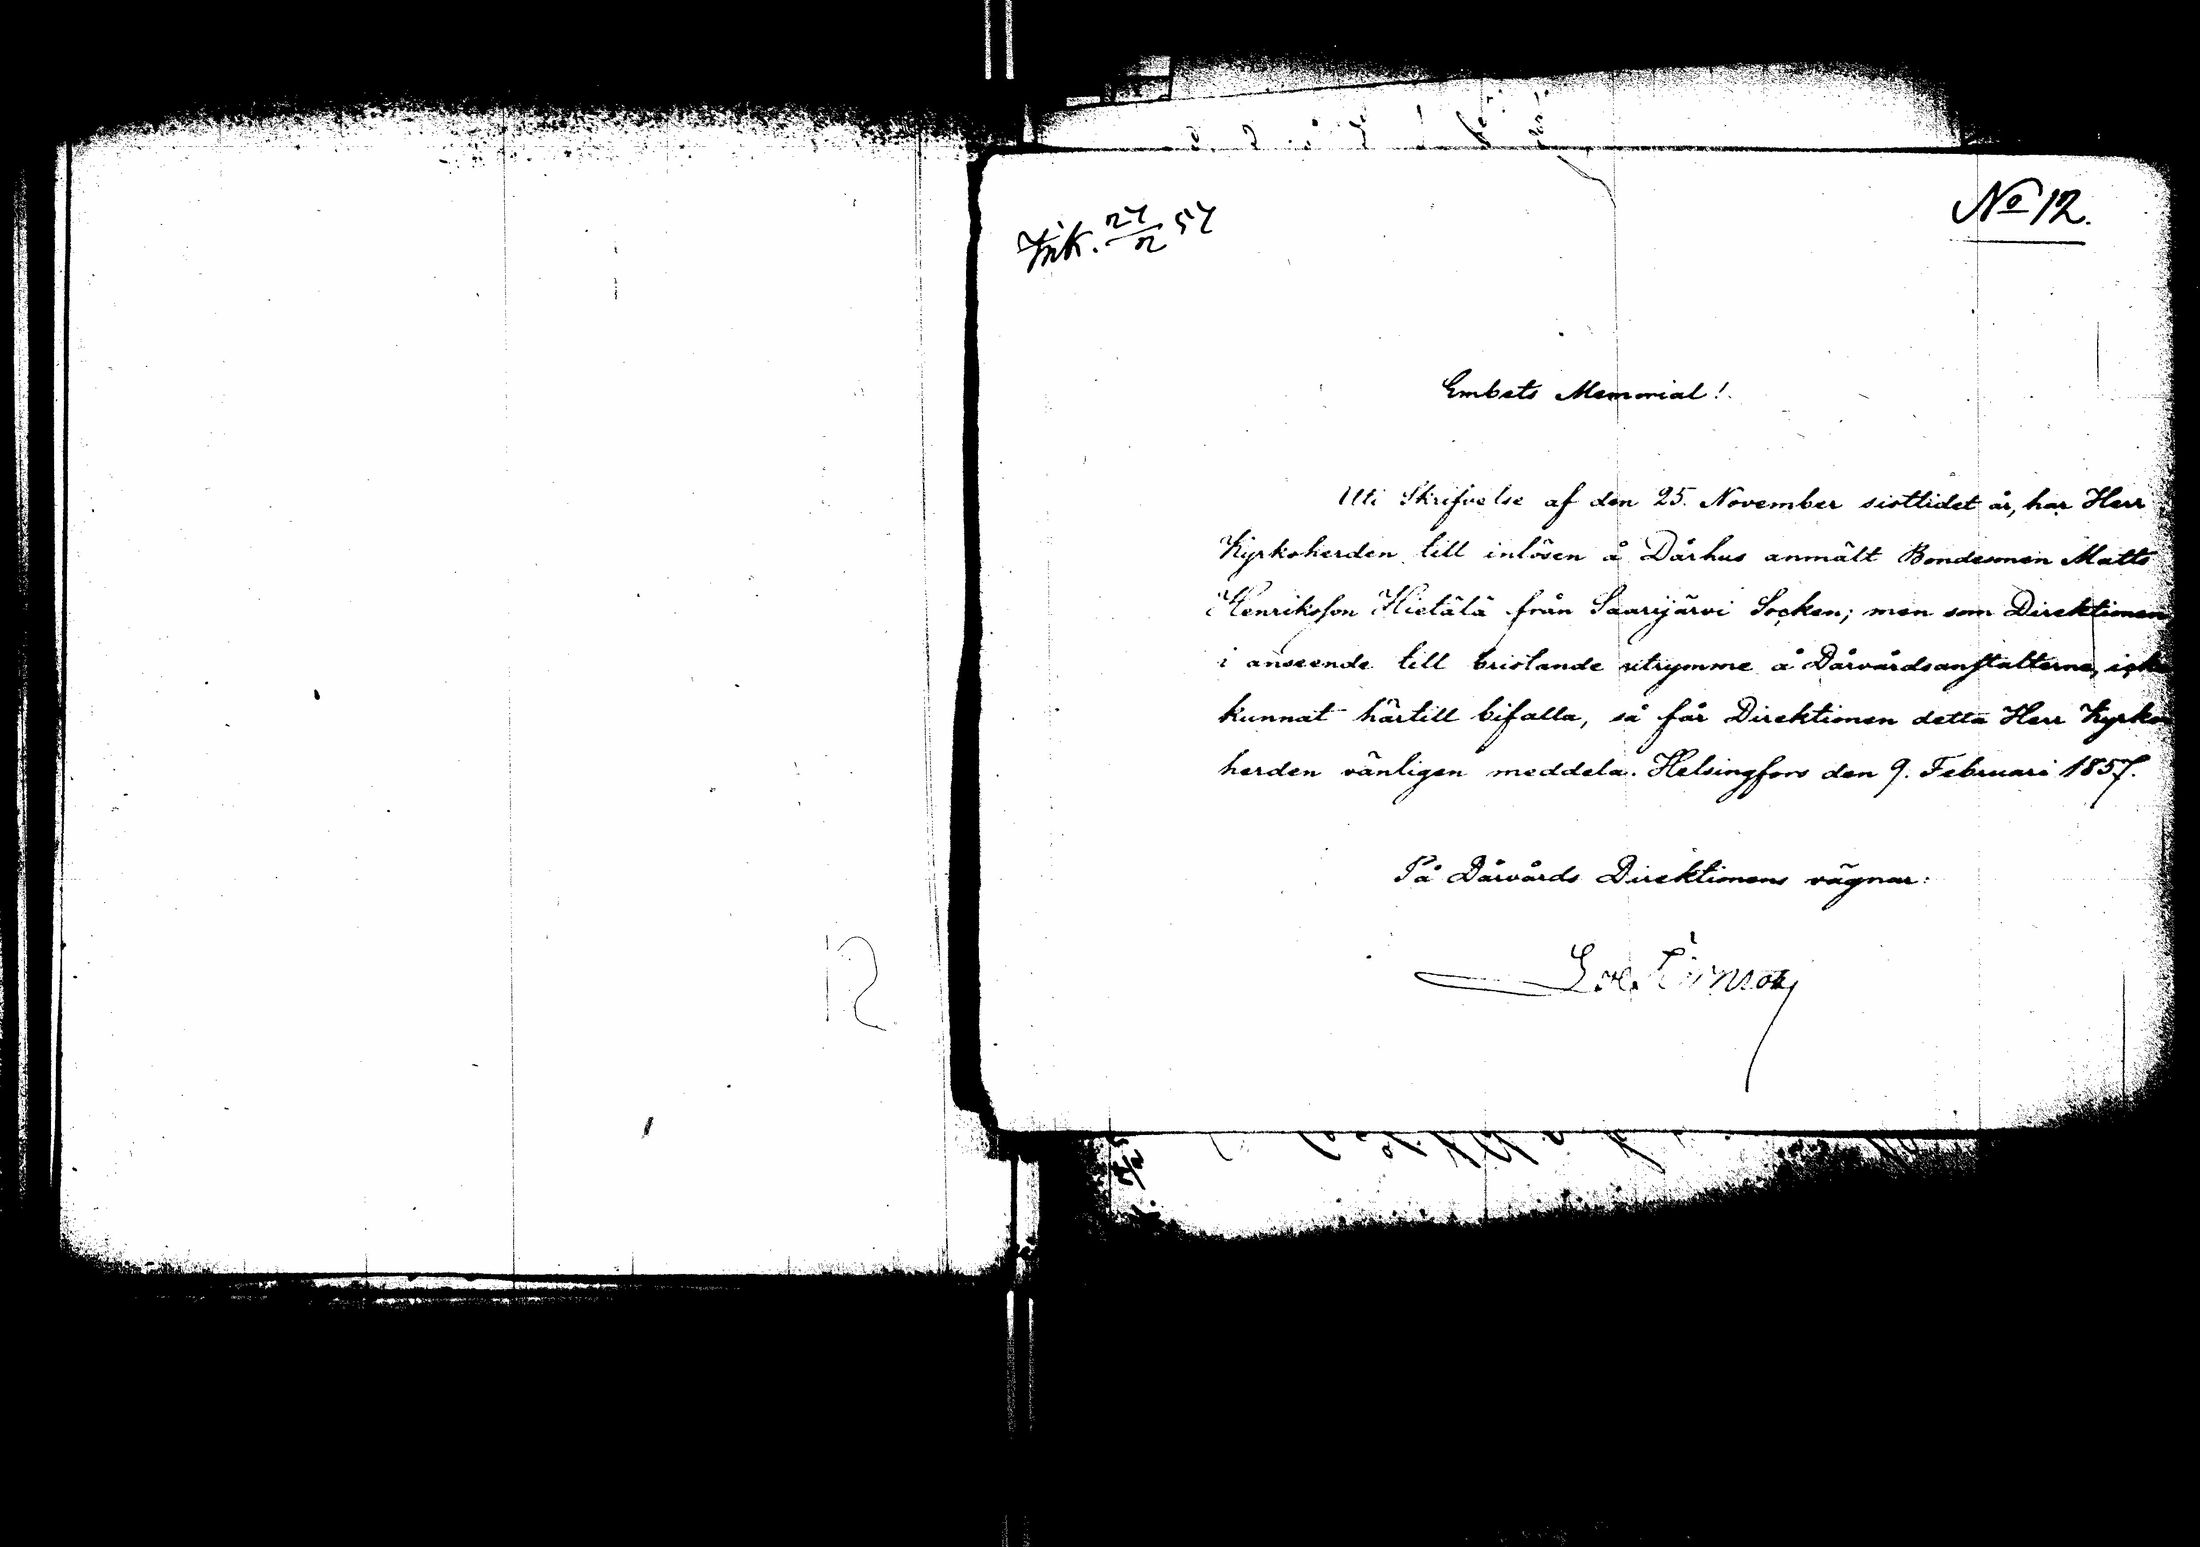 Ink. 27/2 57
No 12.
Embets Memorial!
Uti Skrifvelse af den 25. November sistlidet år, har Herr
Kyrkoherden till inlösen å Dårhus anmält Bondesonen Matts
Henriksson Hietälä från Saarijärvi Socken; men som Direktionen,
i anseende till bristande utrymme å Dårvårdsanstalterne, icke
kunnat härtill bifalla, så får Direktionen detta Herr Kyrko
herden vänligen meddela. Helsingfors den 9. Februari 1857.
På Dårvårds Direktionens vägnar:
12